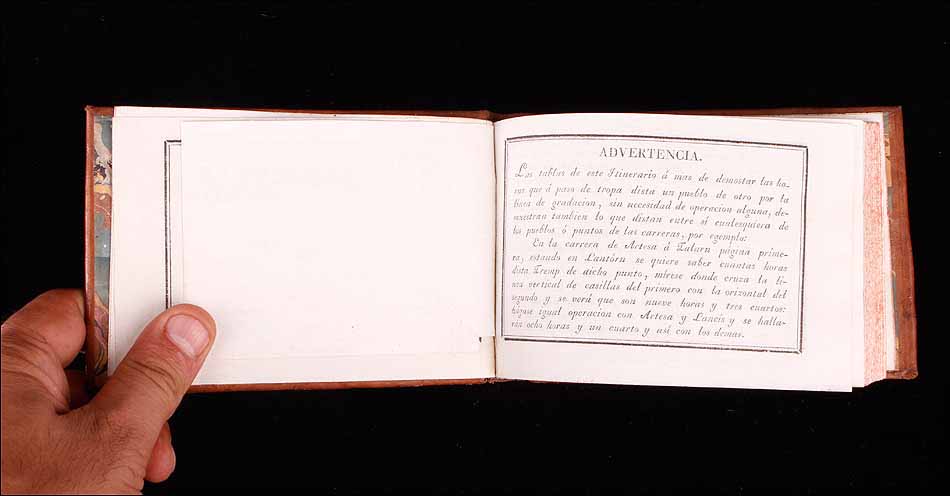 ADVERTENCIA.
Las tablas de este Itinerario á mas de demostar las ho-
ras que á paso de tropa dista un pueblo de otro por la
linea de gradacion, sin necesidad de operacion alguna, de-
muestran tambien lo que distan entre sí cualesquiera de
los pueblos ó puntos de las carreras, por egemplo:
En la carrera de Artesa á Talarn página prime-
ra, estando en Lantórn se quiere saber cuantas horas
dista Tremp de dicho punto, mírese donde cruza la li-
nea vertical de casillas del primero con la orizontal del
segundo y se verá que son nueve horas y tres cuartos:
hágase igual operacion con Artesa y Lancis y se halla-
rán ocho horas y un cuarto y así con los demas.